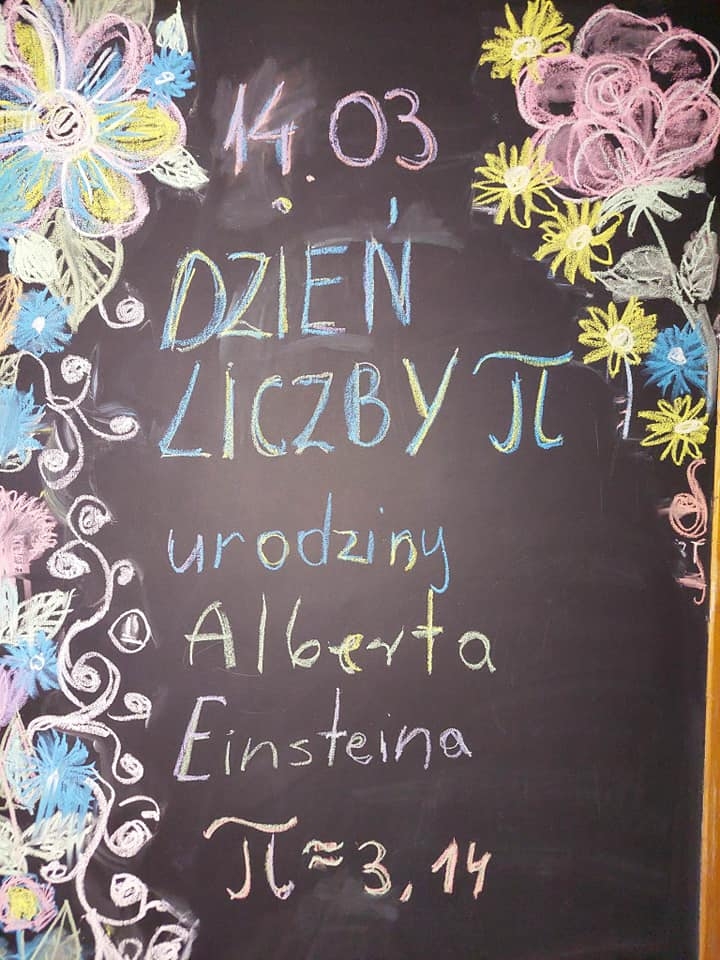 14.03
DZIEŃ
LICZBY π
urodziny
Alberta
Einsteina
π ≈ 3,14